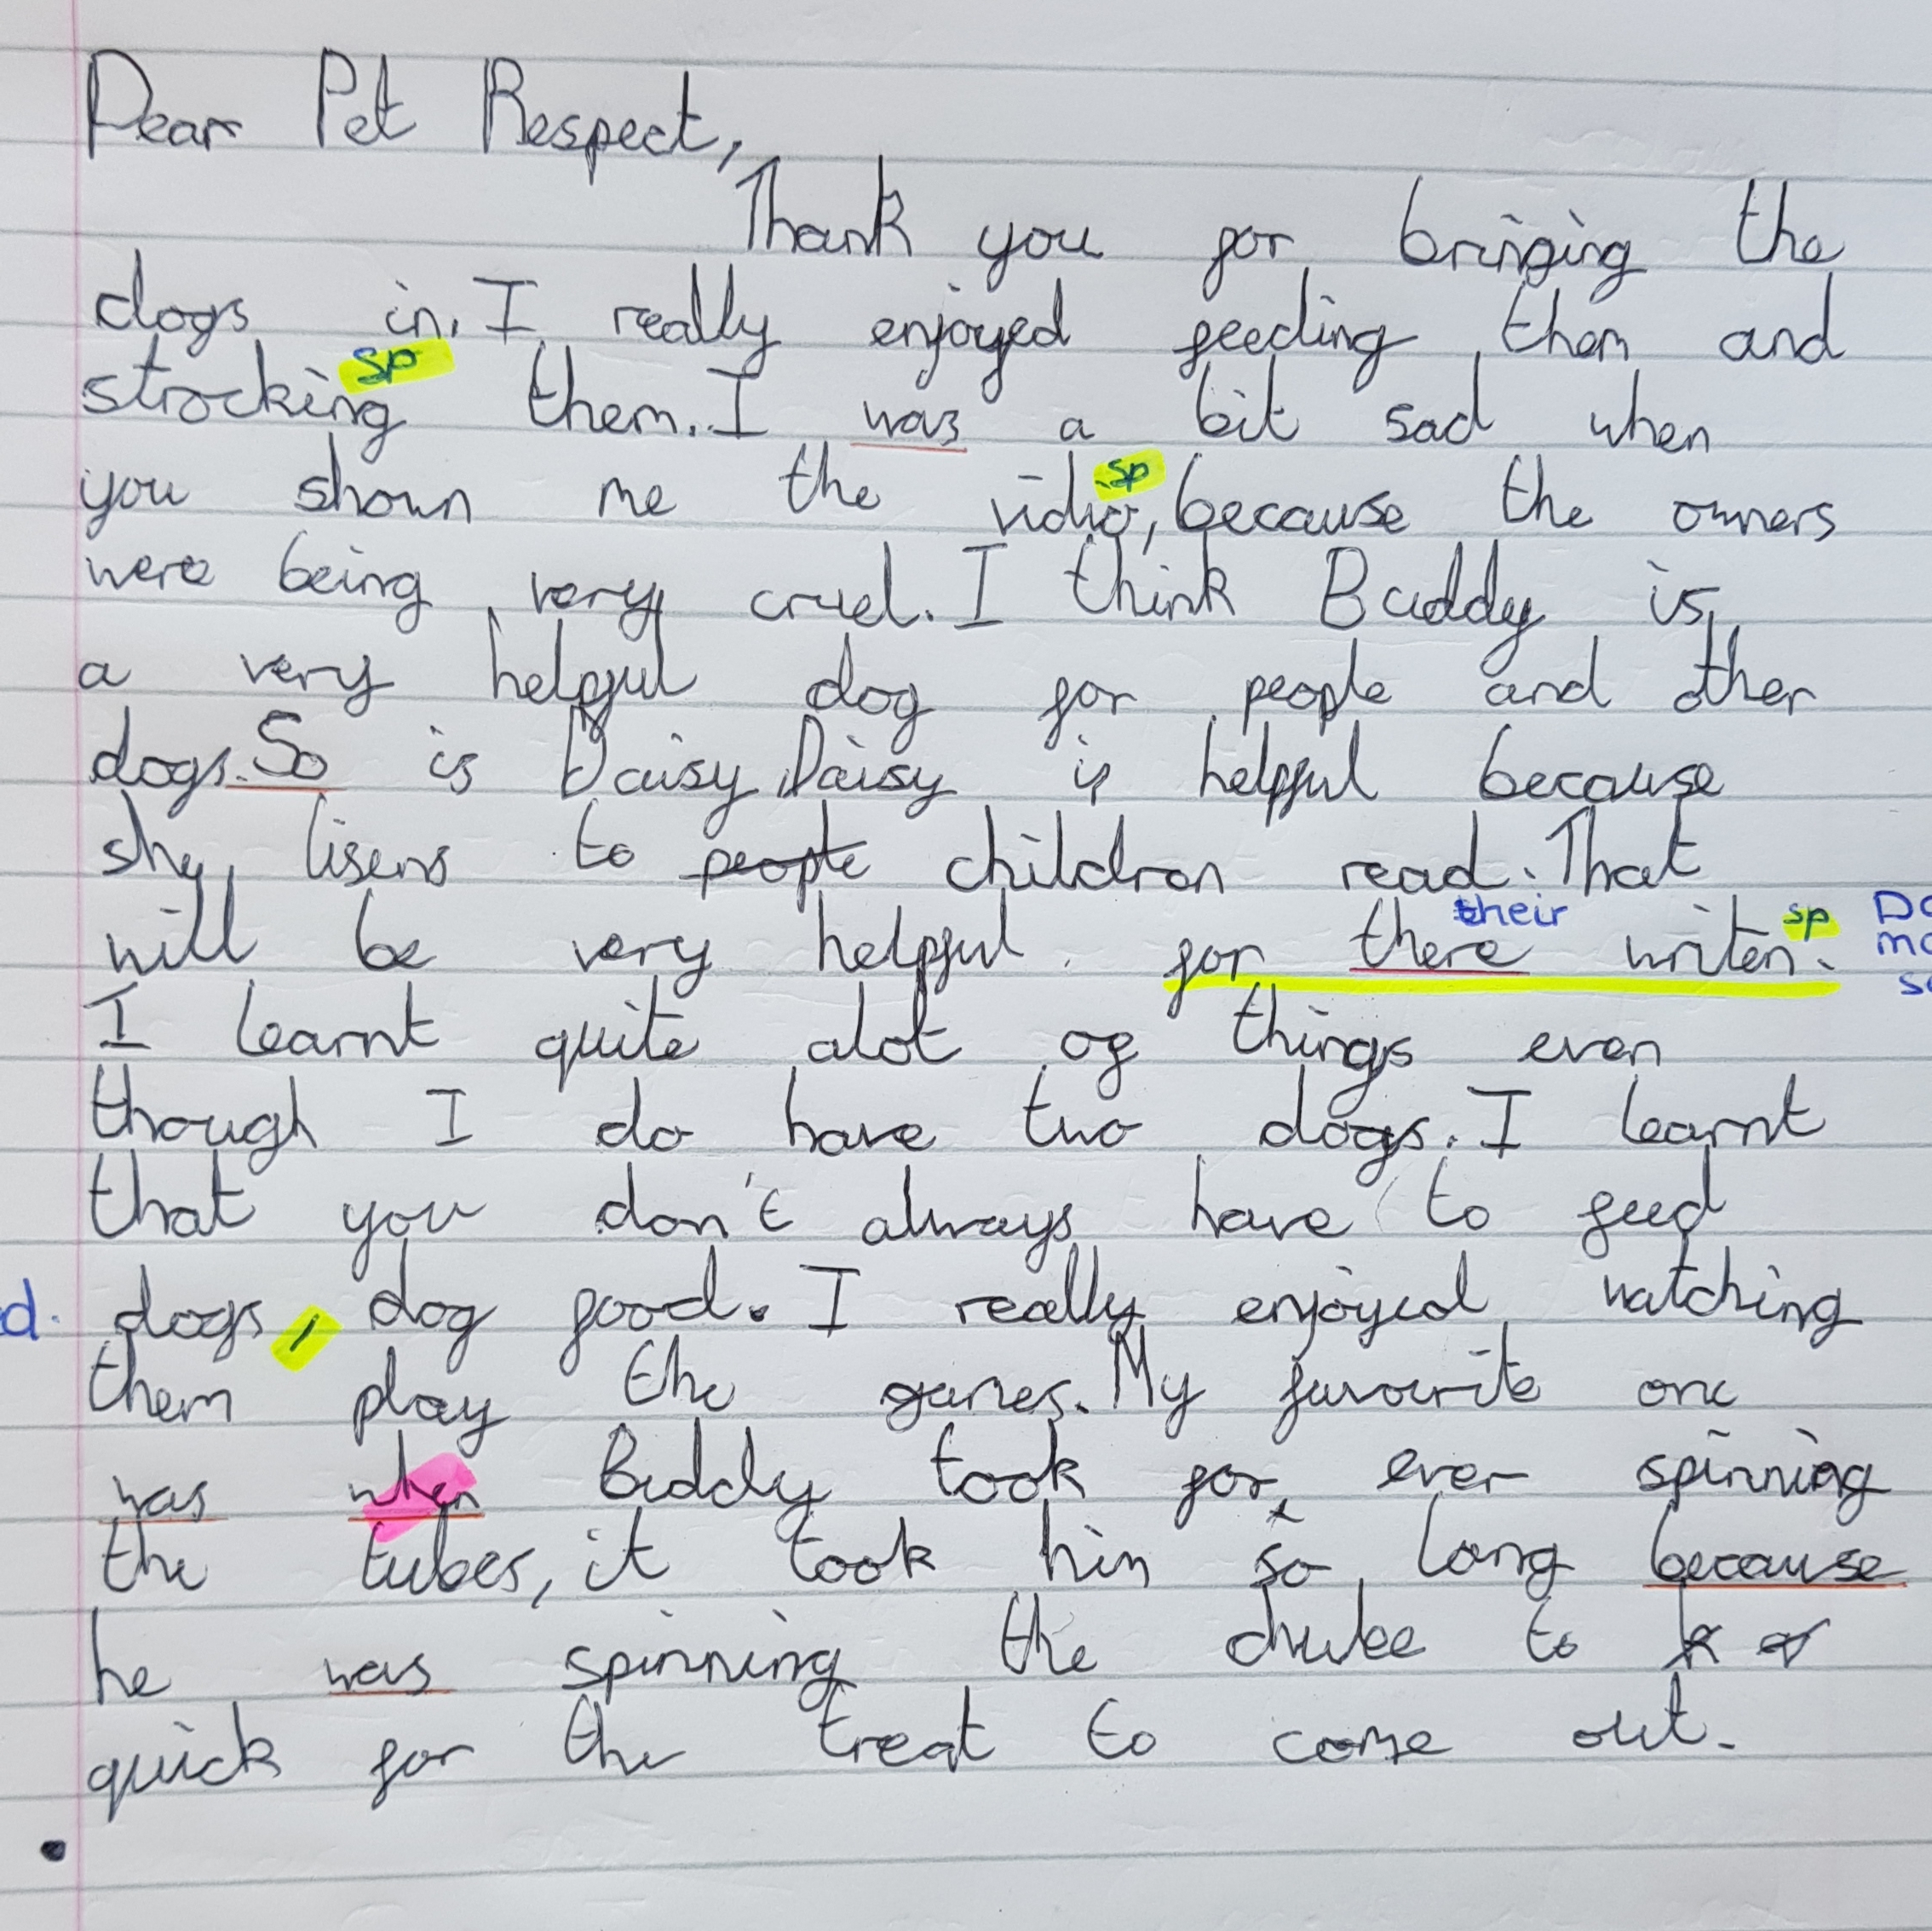 Dear Pet Respect,
Thank you for bringing the
dogs in. I really enjoyed feeding them and
sp
strocking them. I was a bit sad when
sp
you shown me the vidio, because the owners
were being very cruel. I think Buddy is
a very helpful dog for people and other
dogs. So is Daisy. Daisy is helpful because
she lisens to people children read. That
their sp
will be very helpful for there writen.
I learnt quite alot of things even
though I do have two dogs. I learnt
that you don't always have to feed
d. dogs, dog food. I really enjoyed watching
them play the games. My favourite one
was when Buddy took for ever spinning
the tubes, it took him so long because
he was spinning the chube to
quick for the treat to come out.